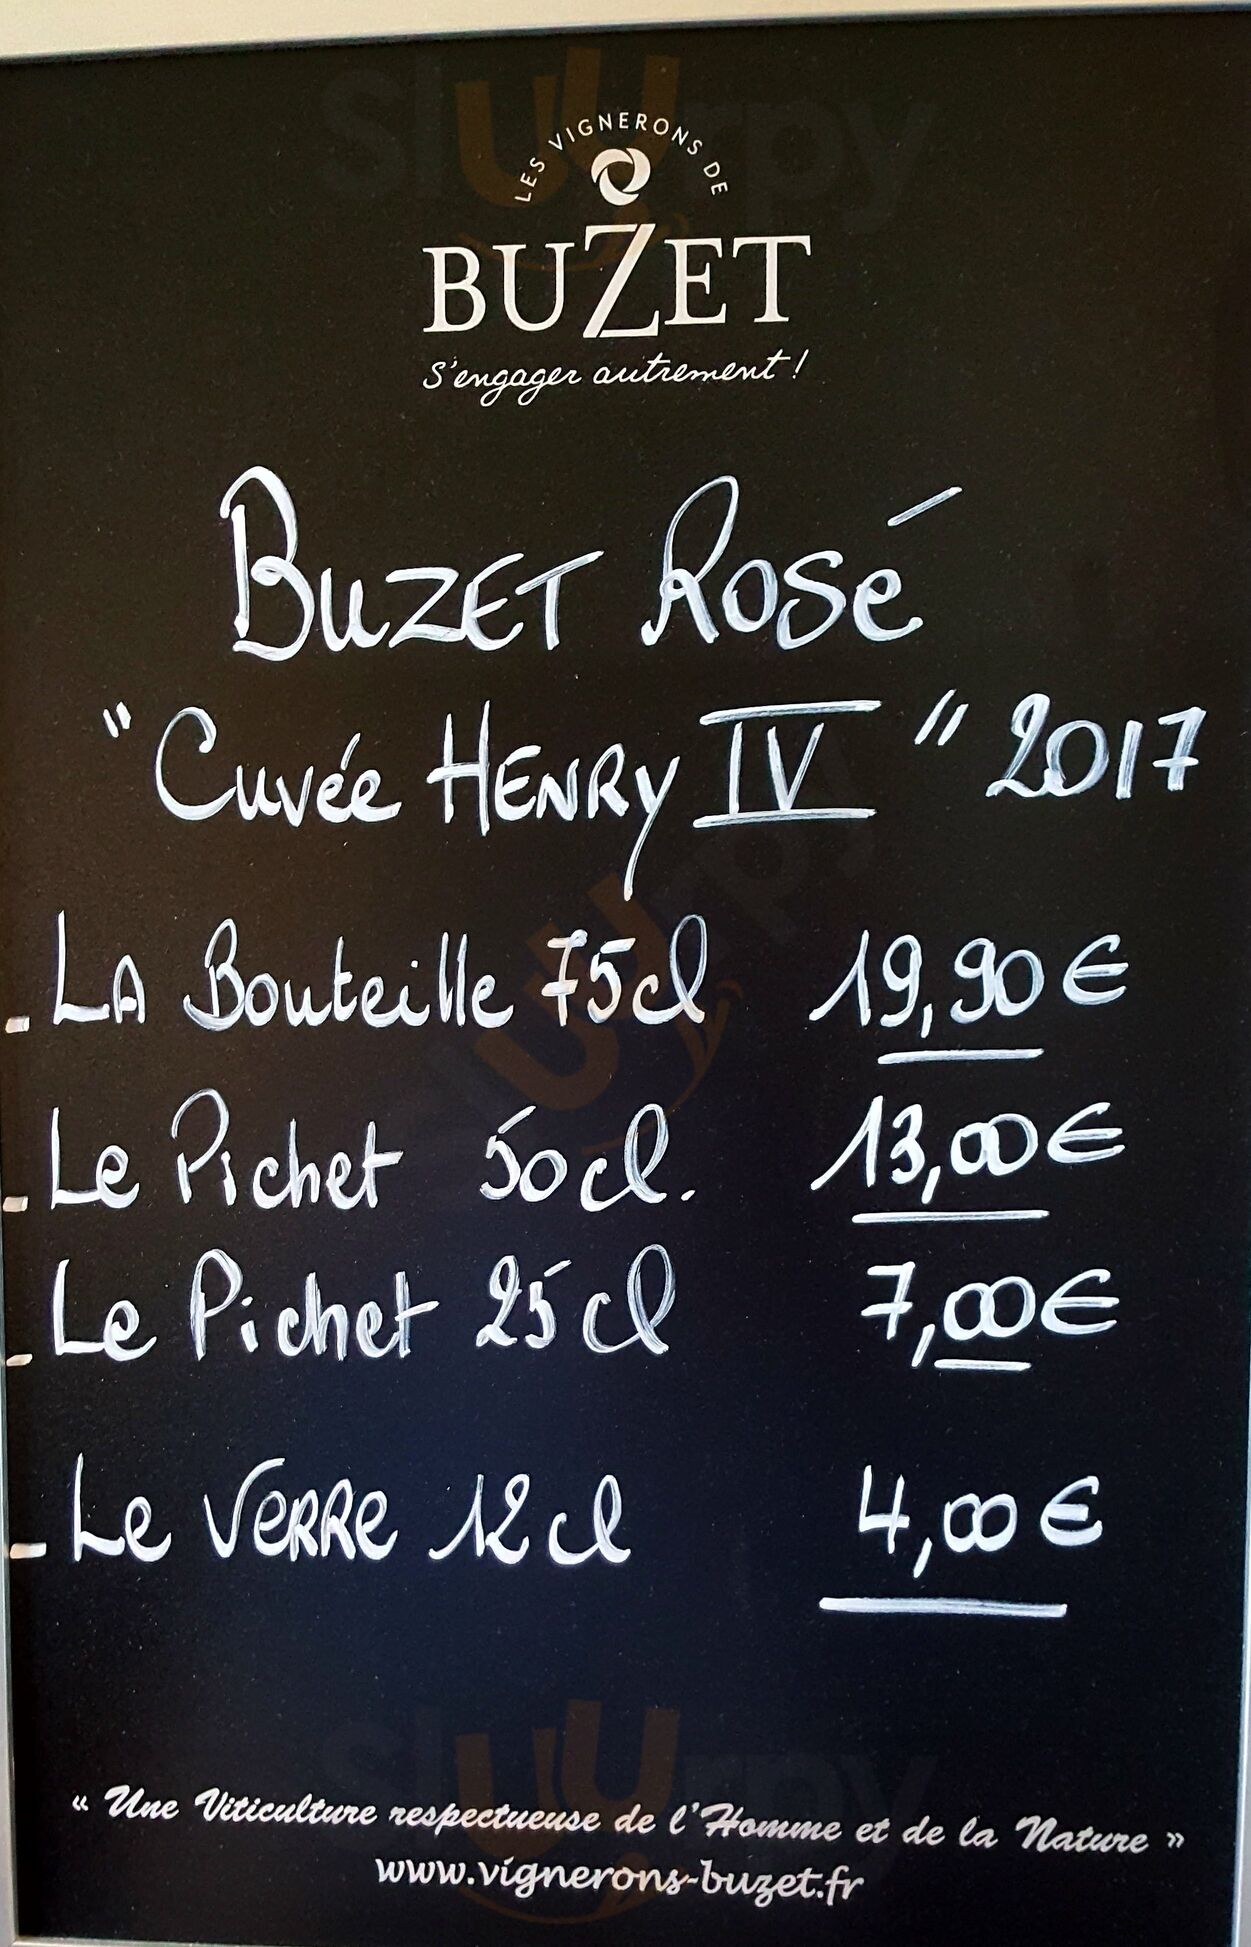 LES VIGNERONS DE
BUZET
S'engager autrement !
BUZET ROSÉ
"Cuvée HENRY IV" 2017
- LA Bouteille 75cl 19,90 €
- Le Pichet 50cl. 13,00 €
- Le Pichet 25cl 7,00 €
- Le VERRE 12cl 4,00 €
« Une Viticulture respectueuse de l'Homme et de la Nature »
www.vignerons-buzet.fr
Sluurpy
Sluurpy
Sluurpy